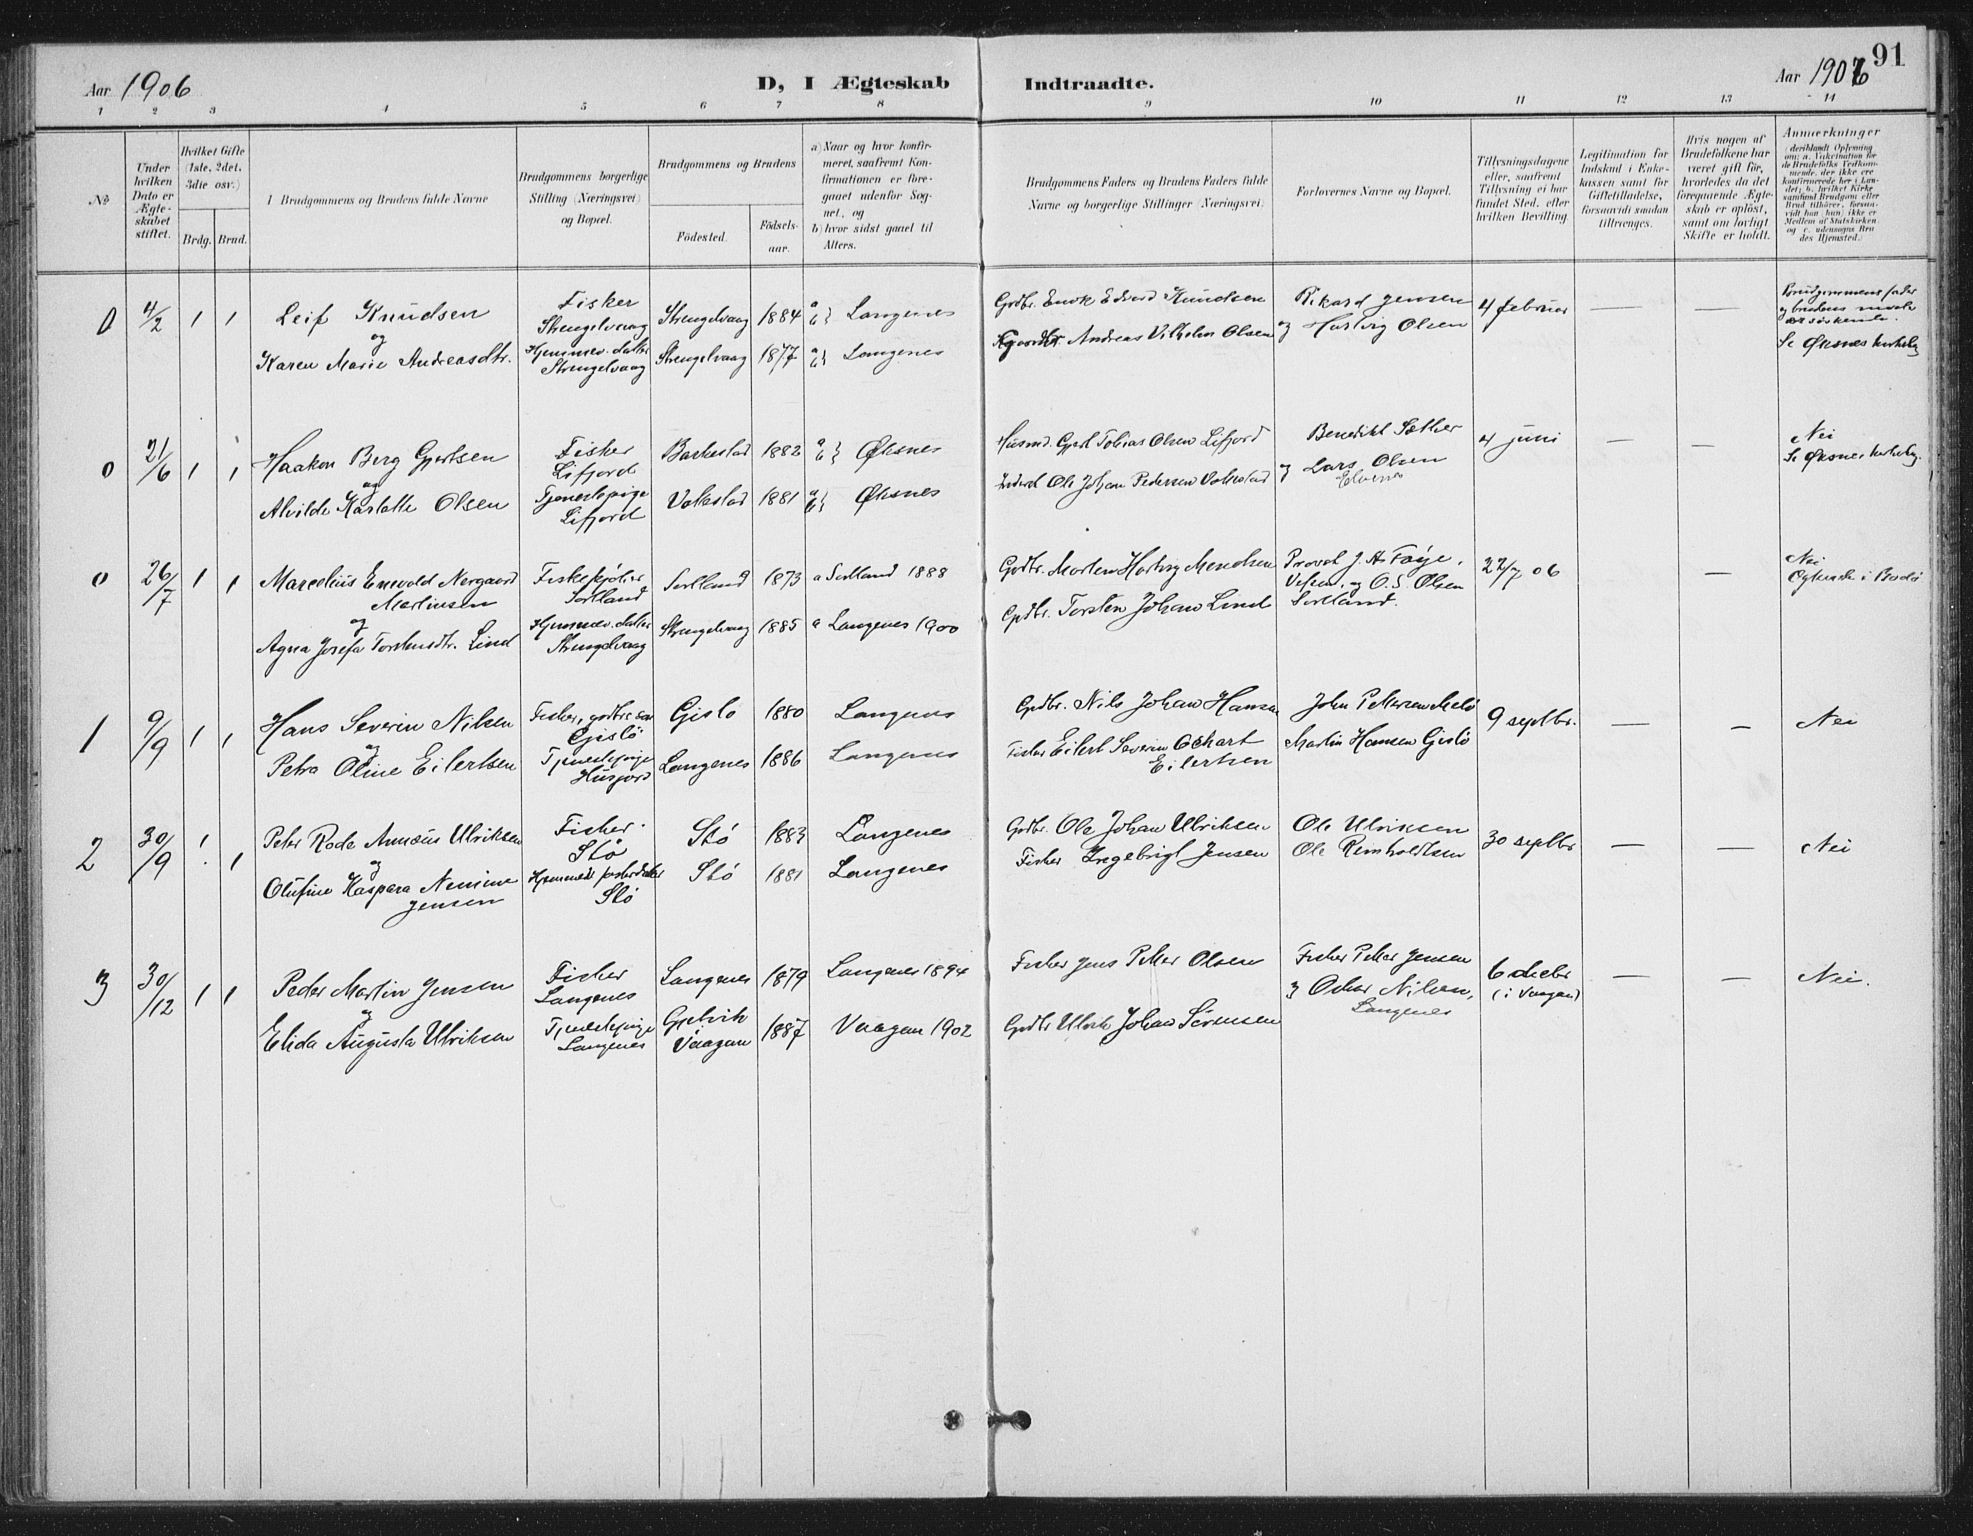 91
Aar 1906
D, I Ægteskab Indtraadte.
Aar 1906
1 2 3 4 5 6 7 8 9 10 11 12 13 14
No
Under hvilken Dato er Ægteskabet stiftet.
Hvilket Gifte (1ste, 2det, 3die osv.)
Brdg. Brud.
Brudgommens og Brudens fulde Navne
Brudgommens borgerlige Stilling (Næringsvei) og Bopæl.
Brudgommens og Brudens
Fødested.
Fødselsaar.
a) Naar og hvor konfirmeret, saafremt Konfirmationen er foregaaet udenfor Sognet, og
b) hvor sidst gaaet til Alters.
Brudgommens Faders og Brudens Faders fulde Navne og borgerlige Stillinger (Næringsvei)
Forlovernes Navne og Bopæl.
Tillysningsdagene eller, saafremt Tillysning ei har fundet Sted, efter hvilken Bevilling
Legitimation for Indskud i Enkekassen samt for Giftetilladelse, forsaavidt saadan tiltrænges.
Hvis nogen af Brudefolkene har været gift før, hvorledes da det foregaaende Ægteskab er opløst, samt om lovligt Skifte er holdt.
Anmærkninger
0 4/2 1 1 Leif Knudsen
og
Karen Marie Andreasdtr.
Fisker
Strengelvaag
Hjemmev. datter
Strengelvaag
Strengelvaag 1884 a b} Langenes
Strengelvaag 1877 a b} Langenes
Grdbr. Enok Edvard Knudsen
Andreas Vilhelm Olsen
Rikard Jensen
og Hartvig Olsen
4 februar — —
Brudgommens fader
og brudens mode
er søskende.
Se Øksnes kirkebog
0 21/6 1 1 Haakon Berg Gjertsen
og
Alvilde Karlotte Olsen
Fisker
Lifjord
Tjenestepige
Lifjord
Barkestad 1882 a b} Øksnes
Valkestad 1881 a b} Øksnes
Husmd. Gjert Tobias Olsen Lifjord
Inderst Ole Johan Pedersen Valkestad
Benedikt Sæther
og Lars Olsen
Elvenes
4 juni — —
Nei
Se Øksnes kirkebog.
0 26/7 1 1 Marcelius Enevold Nergaard
Martinsen
og
Agna Josefa Torstensdtr. Lind
Sortland
Hjemmev. datter
Strengelvaag
Sortland 1873 a Sortland 1888
Strengelvaag 1885 a Langenes 1900
Grdbr. Morten Hartvig
Grdbr. Torsten Johan Lind
Provst J. A. Føye,
og O. S. Olsen
Sortland.
22/7 06 —
Nei
i Bodø
1 9/9 1 1 Hans Severin Nilsen
og
Petra Oline Eilertsen
Fisker, gdbr. søn
Gislø
Tjenestepige
Husjord
Gislø 1880 Langenes
Langenes 1886 Langenes
Grdbr. Nils Johan Hansen
Fisker Eilert Severin Eckart
Eilertsen
John Pettersen Melø
Martin Hansen Gislø
9 septbr. — — Nei
2 30/9 1 1 Peter Rode Annæus Ulriksen
og
Olufine Kaspara Nemine
Jensen
Fisker
Stø
Hjemmev. fosterdatter
Stø
Stø 1883 Langenes
Stø 1881 Langenes
Grdbr. Ole Johan Ulriksen
Fisker Ingebrigt Jensen
Ole Ulriksen
Ole Reinholdtsen
30 septbr — — Nei
3 30/12 1 1 Peder Martin Jensen
og
Elida Augusta Ulriksen
Fisker
Langenes
Tjenestepige
Langenes
Langenes 1879 Langenes 1894
Vaagan 1887 Vaagan 1902
Fisker Jens Peter Olsen
Grdbr. Ulrik Johan Sørensen
Fisker Peter Jensen
og Oskar Nilsen,
Langenes
6 decbr
(i Vaagan)
— — Nei.